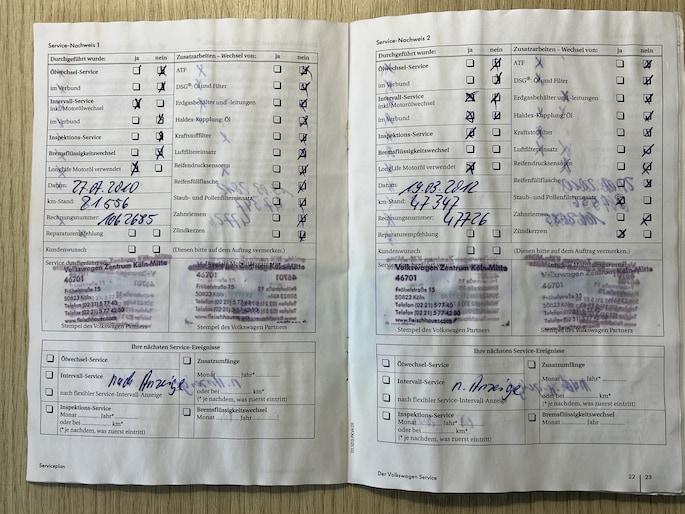 Service-Nachweis 1
Durchgeführt wurde: ja nein
Zusatzarbeiten – Wechsel von: ja nein
Ölwechsel-Service
im Verbund
Intervall-Service
inkl. Motorölwechsel
im Verbund
Inspektions-Service
Bremsflüssigkeitswechsel
LongLife Motoröl verwendet
Datum: 27.07.2010
km-Stand: 81556
Rechnungsnummer: 1062685
Reparaturempfehlung
Kundenwunsch
ATF
DSG®: Öl und Filter
Erdgasbehälter und -leitungen
Haldex-Kupplung: Öl
Kraftstofffilter
Luftfiltereinsatz
Reifendrucksensoren
Reifenfüllflasche
Staub- und Pollenfiltereinsatz
Zahnriemen
Zündkerzen
(Diesen bitte auf dem Auftrag vermerken.)
Service durchgeführt
Volkswagen Zentrum Köln-Mitte
46701
Fröbelstraße 15
50823 Köln
Telefon (02 21) 5 77 42
Telefax (02 21) 5 77 42 50
www.fleischhauer.com
Stempel des Volkswagen Partners
Ihre nächsten Service-Ereignisse
Ölwechsel-Service
Intervall-Service nach Anzeige
nach flexibler Service-Intervall-Anzeige
Inspektions-Service
Monat Jahr*
oder bei km*
(* je nachdem, was zuerst eintritt)
Zusatzumfänge
Monat Jahr*
oder bei km*
(* je nachdem, was zuerst eintritt)
Bremsflüssigkeitswechsel
Monat Jahr
Serviceplan
Service-Nachweis 2
Durchgeführt wurde: ja nein
Zusatzarbeiten – Wechsel von: ja nein
Ölwechsel-Service
im Verbund
Intervall-Service
inkl. Motorölwechsel
im Verbund
Inspektions-Service
Bremsflüssigkeitswechsel
LongLife Motoröl verwendet
Datum: 19.03.2012
km-Stand: 47347
Rechnungsnummer: 47726
Reparaturempfehlung
Kundenwunsch
ATF
DSG®: Öl und Filter
Erdgasbehälter und -leitungen
Haldex-Kupplung: Öl
Kraftstofffilter
Luftfiltereinsatz
Reifendrucksensoren
Reifenfüllflasche
Staub- und Pollenfiltereinsatz
Zahnriemen
Zündkerzen
(Diesen bitte auf dem Auftrag vermerken.)
Volkswagen Zentrum Köln-Mitte
46701
Fröbelstraße 15
50823 Köln
Telefon (02 21) 5 77 42
Telefax (02 21) 5 77 42 50
www.fleischhauer.com
Stempel des Volkswagen Partners
Ihre nächsten Service-Ereignisse
Ölwechsel-Service
Intervall-Service n. Anzeige
nach flexibler Service-Intervall-Anzeige
Inspektions-Service
Monat Jahr*
oder bei km*
(* je nachdem, was zuerst eintritt)
Zusatzumfänge
Monat Jahr*
oder bei km*
(* je nachdem, was zuerst eintritt)
Bremsflüssigkeitswechsel
Monat Jahr
Der Volkswagen Service
22 23